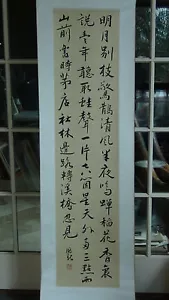 明月別枝驚鵲清風半夜鳴蟬稻花香裏
說豐年聽取蛙聲一片七八箇星天外兩三點雨
山前舊時茅店社林邊路轉溪橋忽見